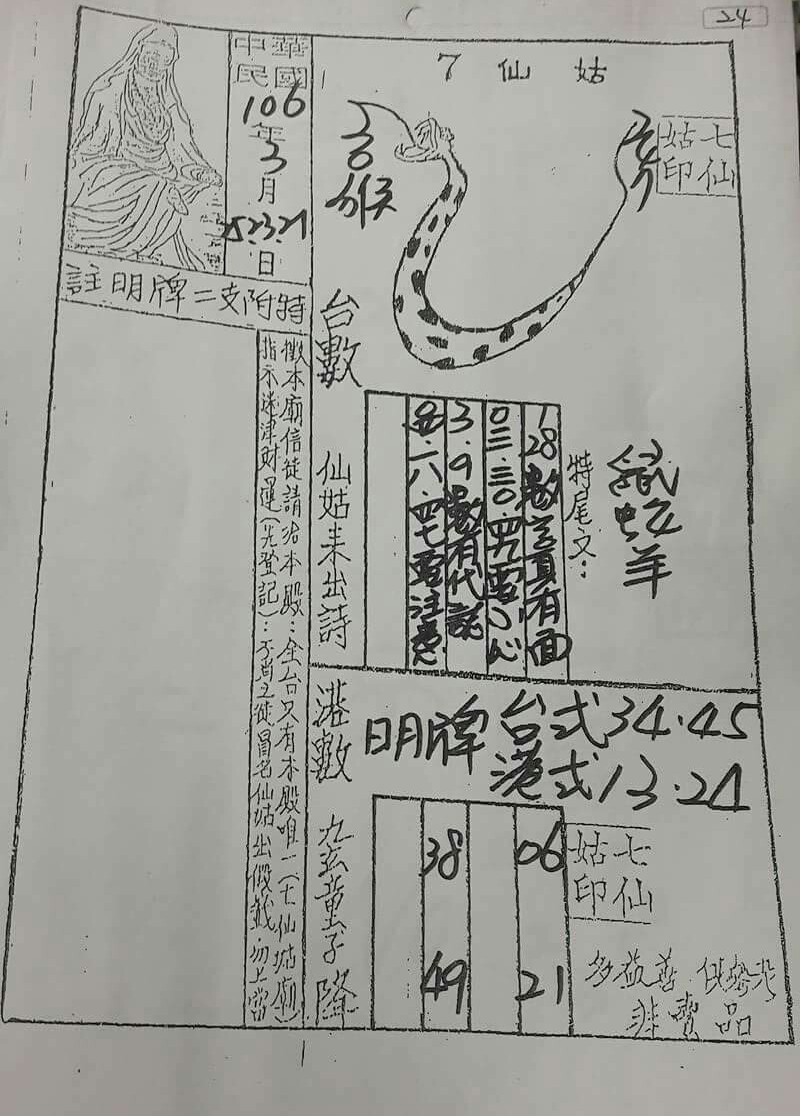 24
7 仙 姑
中華
民國
106
年
3
月
25.23.21
日
七仙
姑印
猴
註明牌二支附特
台數
仙姑未出詩
特尾文：
128數
03.30.四九要小心
3.9數有代誌
四七要注意
羊
徵本廟信徒請洽本殿：全台只有本殿唯一（七仙姑廟）
指示迷津財運（先登記）：不肖之徒冒名仙姑出假籤．勿上當
港數
明牌 台式34.45
港式13.24
童子
06
21
38
49
七仙
姑印
非賣品